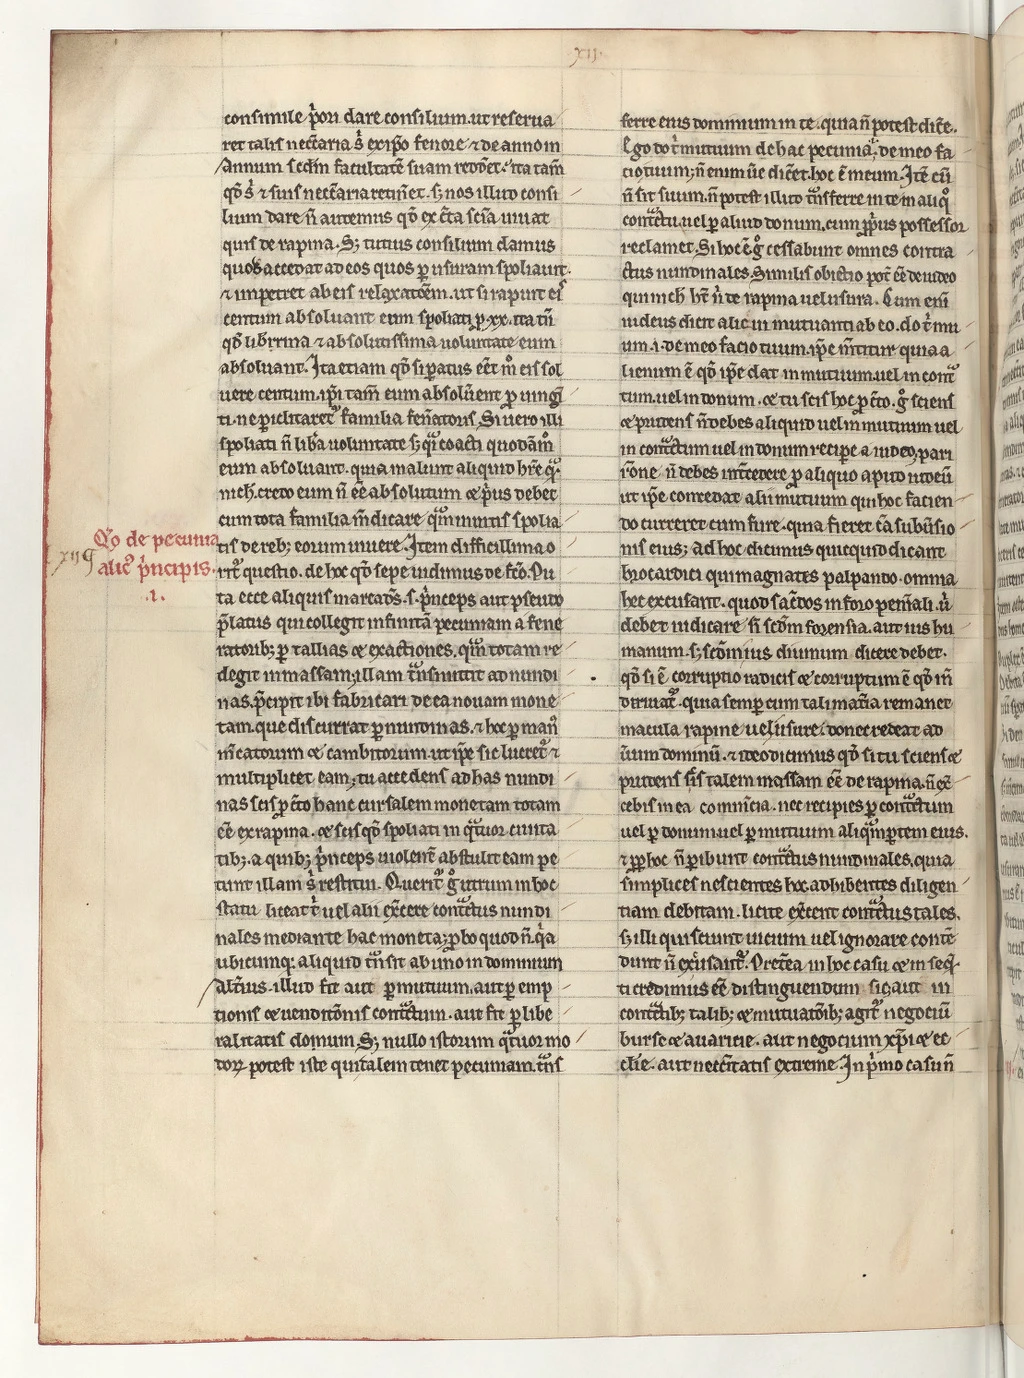 .xii.
consimile p̄ori dare consilium. ut reserua
ret talis neccͣria s̄ ex ip̄o fenore ⁊ de anno in
Annum scd̄m facultatē suam redd̾et. ita tam̄
qd̾ s̄ ⁊ suis neccͣria retin̾et. sꝫ nos illud consi
lium dare n̄ audemus qd̾ ex c̄ta sc̄ia uiuat
quis de rapina. Sꝫ tutius consilium damus
quod accedat ad eos quos ꝑ usuram spoliauit.
⁊ impetret ab eis relaxatōem. ut si rapuit eis
centum absoluant eum spoliati ꝑ .xx. ita tn̄
qd̾ libērima ⁊ absolutissima uoluntate eum
absoluant. Ita etiam qd̾ si ꝑatus eēt in eis sol
uere centum. ip̄i tam̄ eum absolu̾ent ꝑ uingi
ti. ne ꝑiclitaret̾ familia fen̾atoris. Si uero illi
spoliati n̄ lib̾a uoluntate sꝫ q̄i coacti quodām̄
eum absoluant. quia malunt aliquid hr̄e qͣ
nich̾. credo eum n̄ eē absolutum ⁊ p̾us debet
cum tota familia m̄dicare qͣm inuitis spolia
Qͦo de pecunia
tis de rebꝫ eorum uiuere. Item difficillima o
xiiꝯ
alic̾ p̾ncipis.
rit̾ questio. de hoc qd̾ sepe uidimus de fc̄o. Pu
.i.
ta ecce aliquis marcatōs .s. p̾nceps aut pseudo
p̄latus qui collegit infinitā pecuniam a fene
ratoribꝫ ꝑ tallias ⁊ exactiones. qͣm totam re
degit in massam, illam tͣnsmittit ad nundi
nas. p̄cipit ibi fabricari de ea nouam mone
tam. que discurrat ꝑ nundinas. ⁊ hoc ꝑ man̾
m̄catorum ⁊ cambitorum. ut ip̄e sic lucret̾ ⁊
multiplicet eam; tu accedens ad has nundi
nas scis ꝑ c̄to hanc cursalem monetam totam
eē ex rapina. ⁊ scis qd̾ spoliati in qͣtuor ciuita
tibꝫ. a quibꝫ p̾nceps uiolent̾ abstulit eam pe
tunt illam s̄ restitui. Querit̾ g̾ utrum in hoc
statu liceat t̾ uel alii ex̾cere contͣctus nundi
nales mediante hac moneta; ꝓbo quod n̄. qͥa
ubicumqꝫ aliquid tͣnsit ab uno in dominium
Alt̾ius. illud fit aut ꝑ mutuum. aut ꝑ emp
tionis ⁊ uenditōnis contͣctum. aut fit ꝑ libe
ralitatis donum. Sꝫ nullo istorum qͣtuor mo
doꝝ potest iste qui talem tenet pecuniam. tͣns
ferre eius dominium in te. quia n̄ potest dic̾e.
Ego do t̾ mutuum de hac pecunia; de meo fa
cio tuum; n̄ enim u̾e dic̾et. hoc ē meum. Itē cū
n̄ sit suum. n̄ potest illud tͣnsferre in te in aliqͦ
contͣctu. uel ꝑ aliud donum. cum ꝓp̾us possessor
reclamet. Si hoc ē. g̾ cessabunt omnes contra
ctus nundinales. Similis obiectio pot̄ eē de iudeo
qui nich̾ ht̄ n̄ de rapina uel usura. Cum enī
iudeus dicit alic̾ in mutuanti ab eo. do t̾ mu
um .i. de meo facio tuum. ip̄e m̄titur quia a
lienum ē qd̾ ip̄e dat in mutuum. uel in contͣ
tum. uel in donum. ⁊ tu scis hoc ꝑ c̄to. g̾ sciens
⁊ prudens n̄ debes aliquid uel in mutuum uel
in contͣctum uel in donum recipe a iudeo; pari
r̄one n̄ debes int̾cedere ꝑ aliquo apud iudeū
ut ip̄e concedat alii mutuum qui hoc facien
do curreret cum fure. quia fieret c̄ta subūsio
nis eius; ad hoc dicimus quicquid dicant
brocardici qui magnates palpando. omnia
hec excusant. quod sac̾dos in foro penit̾ali. n̄
debet iudicare n̄ scd̄m forensia. aut ius hu
manum. sꝫ scd̄m ius diuinum dicere debet.
qd̾ si ē corruptio radicis ⁊ corruptum ē qd̾ in̄
diriuat̾. quia semper cum tali mat̾ia remanet
macula rapine uel usure. donec redeat ad
uūm dominū. ⁊ ideo dicimus qd̾ si tu sciens ⁊
prudens scīs talem massam eē de rapina. n̄ ex̾
cebis in ea comm̾cia. nec recipies ꝑ contͣctum
uel ꝑ donum. uel ꝑ mutuum aliqͣm ꝑtem eius.
⁊ ꝓpt̾ hoc n̄ ꝑibunt contͣctus nundinales. quia
simplices nescientes hoc. adhibentes diligen
tiam debitam. licite ex̾cent contͣctus tales.
sꝫ illi qui sciunt uicium uel ignorare conte̅
dunt n̄ excusant̾. Pret̾ea in hoc casu ⁊ in seqͥ.
ti credimus eē distinguendum si aut in
contͣctibꝫ talibꝫ ⁊ mutuatōibꝫ agit̾ negociū
burse ⁊ auaricie. aut negocium xp̄i ⁊ ec
clie. aut necc̄itatis extreme. In p̾mo casu n̄